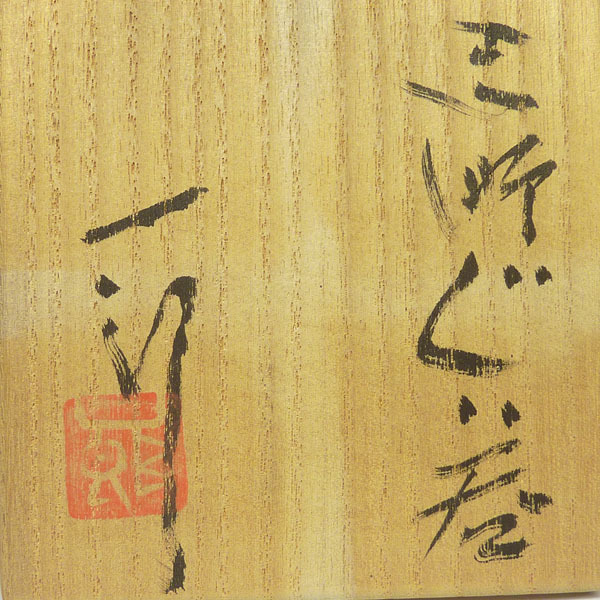 志野ぐい呑
一郎